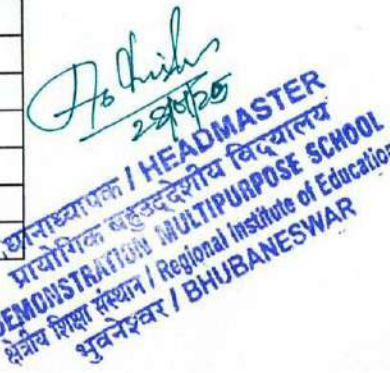 28/01/25
प्रधानाध्यापक / HEADMASTER
प्रायोगिक बहुउद्देशीय विद्यालय
DEMONSTRATION MULTIPURPOSE SCHOOL
क्षेत्रीय शिक्षा संस्थान / Regional Institute of Education
भुवनेश्वर / BHUBANESWAR